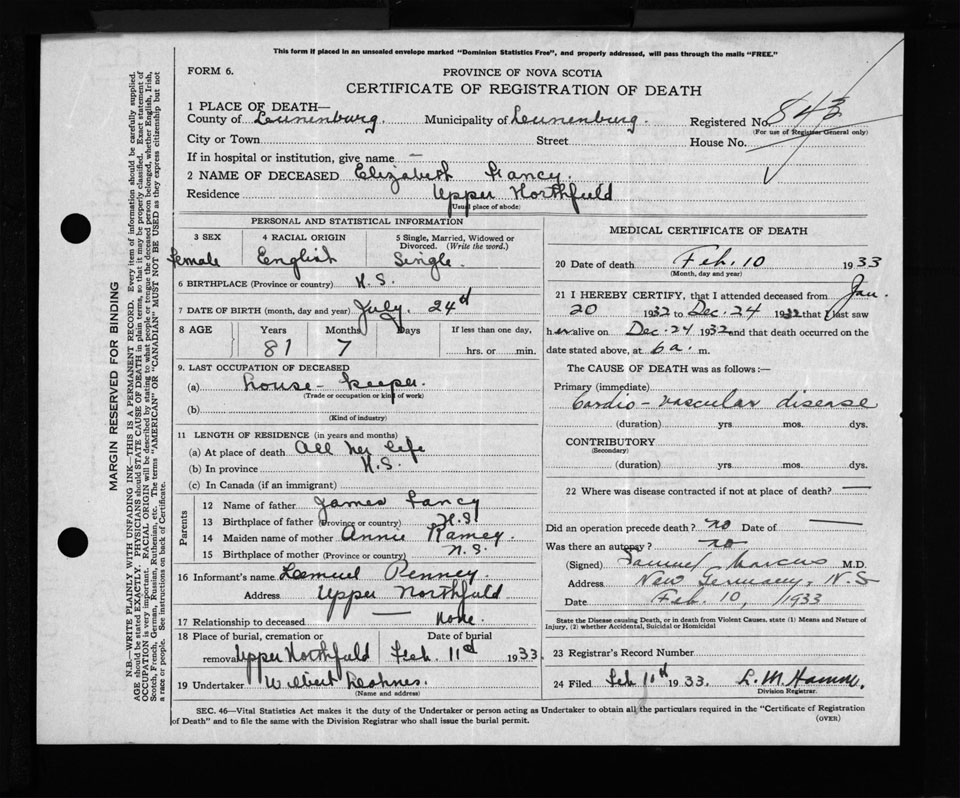 This form if placed in an unsealed envelope marked "Dominion Statistics Free", and properly addressed, will pass through the mails "FREE."
FORM 6.
PROVINCE OF NOVA SCOTIA
CERTIFICATE OF REGISTRATION OF DEATH
1 PLACE OF DEATH—
County of Lunenburg. Municipality of Lunenburg. Registered No. 843
(For use of Registrar General only)
City or Town Street House No.
If in hospital or institution, give name —
2 NAME OF DECEASED Elizabeth Fancy.
Residence Upper Northfield
(Usual place of abode)
PERSONAL AND STATISTICAL INFORMATION
3 SEX 4 RACIAL ORIGIN 5 Single, Married, Widowed or Divorced. (Write the word.)
Female English Single.
6 BIRTHPLACE (Province or country) N.S.
7 DATE OF BIRTH (month, day and year) July. 24d
8 AGE Years Months Days If less than one day,
81 7 hrs. or min.
9. LAST OCCUPATION OF DECEASED
(a) house-keeper.
(Trade or occupation or kind of work)
(b)
(Kind of industry)
11 LENGTH OF RESIDENCE (in years and months)
(a) At place of death All her life
(b) In province N.S.
(c) In Canada (if an immigrant)
Parents
12 Name of father James Fancy
13 Birthplace of father (Province or country) N.S.
14 Maiden name of mother Annie Ramey.
15 Birthplace of mother (Province or country) N.S.
16 Informant's name Lemuel Penney.
Address Upper Northfield
17 Relationship to deceased — None.
18 Place of burial, cremation or Date of burial
removal Upper Northfield Feb. 11d 1933.
19 Undertaker Wilbert
(Name and address)
MEDICAL CERTIFICATE OF DEATH
20 Date of death Feb. 10 1933
(Month, day and year)
21 I HEREBY CERTIFY, that I attended deceased from Jan.
20 1932 to Dec. 24 1932 that I last saw
her alive on Dec. 24 1932 and that death occurred on the
date stated above, at 6 a. m.
The CAUSE OF DEATH was as follows:—
Primary (immediate)
Cardio-vascular disease
(duration) yrs. mos. dys.
CONTRIBUTORY
(Secondary)
(duration) yrs. mos. dys.
22 Where was disease contracted if not at place of death? —
Did an operation precede death? no Date of —
Was there an autopsy? no
(Signed) Samuel Marcus M.D.
Address New Germany, N.S
Date Feb. 10, 1933
State the Disease causing Death, or in death from Violent Causes, state (1) Means and Nature of
Injury, (2) whether Accidental, Suicidal or Homicidal
23 Registrar's Record Number
24 Filed Feb 10th 1933. L. M.
Division Registrar.
SEC. 46—Vital Statistics Act makes it the duty of the Undertaker or person acting as Undertaker to obtain all the particulars required in the "Certificate of Registration
of Death" and to file the same with the Division Registrar who shall issue the burial permit.
(OVER)
MARGIN RESERVED FOR BINDING
N.B.—WRITE PLAINLY WITH UNFADING INK—THIS IS A PERMANENT RECORD. Every item of information should be carefully supplied.
AGE should be stated EXACTLY. PHYSICIANS should STATE CAUSE OF DEATH in plain terms, so that it may be properly classified. Exact statement of
OCCUPATION is very important. RACIAL ORIGIN will be described by stating to what people or tongue the deceased person belonged, whether English, Irish,
Scotch, French, German, Russian, Ruthenian, etc. The terms "AMERICAN" OR "CANADIAN" MUST NOT BE USED as they express citizenship but not
a race or people. See instructions on back of Certificate.